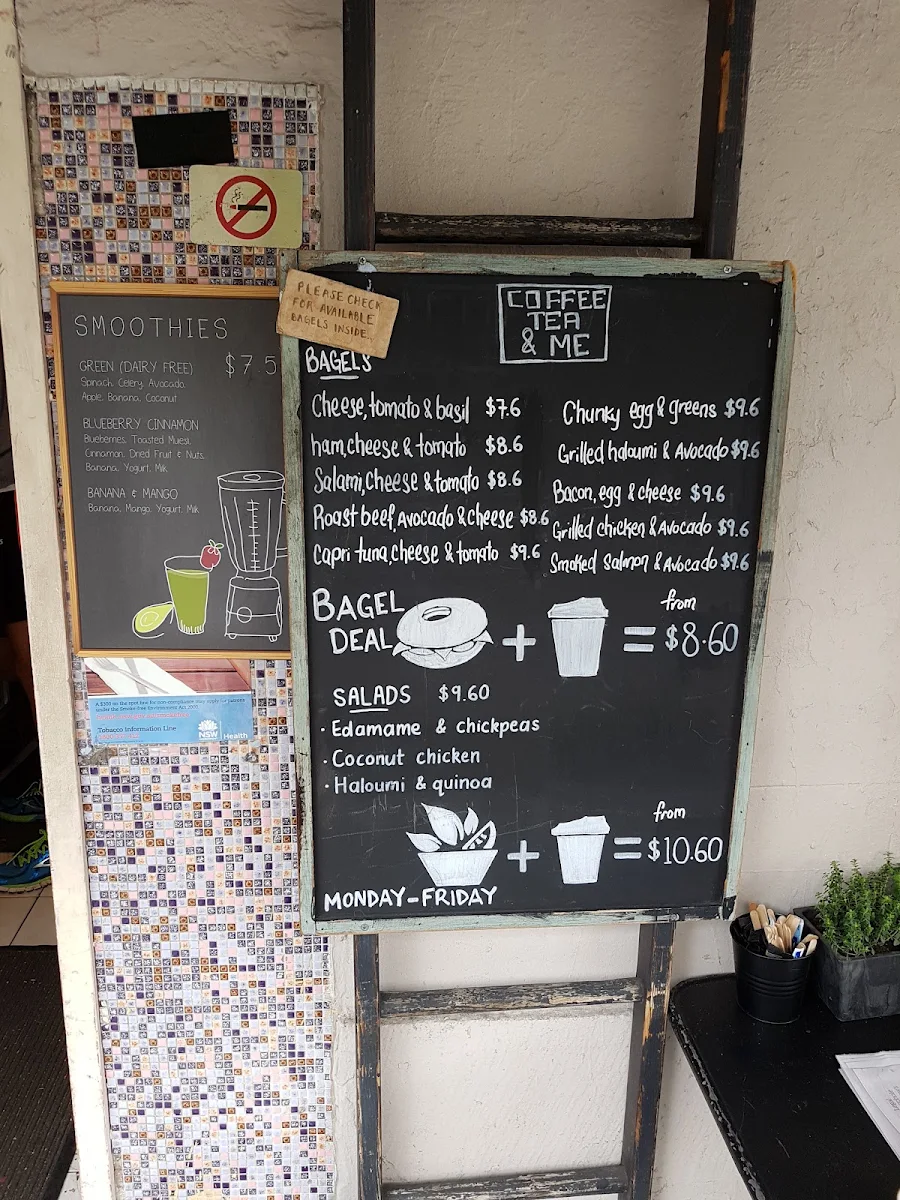 SMOOTHIES
GREEN (DAIRY FREE) $7.5
Spinach, Celery, Avocado,
Apple, Banana, Coconut
BLUEBERRY CINNAMON
Blueberries, Toasted Muesli,
Cinnamon, Dried Fruit & Nuts,
Banana, Yogurt, Milk
BANANA & MANGO
Banana, Mango, Yogurt, Milk
Tobacco Information Line
NSW
Health
PLEASE CHECK
FOR AVAILABLE
BAGELS INSIDE.
COFFEE
TEA
& ME
BAGELS
Cheese, tomato & basil $7.6
ham, cheese & tomato $8.6
Salami, Cheese & tomato $8.6
Roast beef, Avocado & cheese $8.6
Capri tuna, cheese & tomato $9.6
Chunky egg & greens $9.6
Grilled haloumi & Avocado $9.6
Bacon, egg & cheese $9.6
Grilled chicken & Avocado $9.6
Smoked salmon & Avocado $9.6
BAGEL
DEAL + = from $8.60
SALADS $9.60
· Edamame & chickpeas
· Coconut chicken
· Haloumi & quinoa
+ = from $10.60
MONDAY-FRIDAY